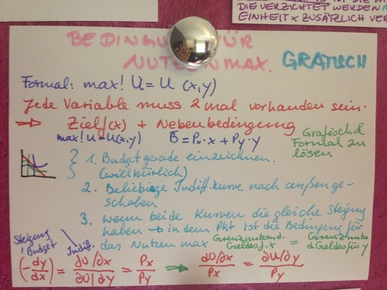 DIE VERZICHTET WERDEN
EINHEIT X ZUSÄTZLICH
BEDINGU FÜR
NUTZEN MAX. GRAFISCH
Formal: max! U = U (x,y)
Jede Variable muss 2 mal vorhanden sein.
⇒ Ziel f(x) + Nebenbedingung
max! U = U(x,y) B̄ = Px · x + Py · y
Grafisch &
Formal zu
lösen
1. Budgetgerade einzeichnen.
(willkürlich)
2. Beliebige Indiff.kurve nach außen ge-
schoben
3. wenn beide Kurven die gleiche Steigung
haben → in dem Pkt ist die Bedingung für
das Nutzen max
Steigung
Budget
Indiff.
(-dy/dx) = ∂U/∂x / ∂U/∂y = Px/Py ⇒ ∂U/∂x / Px = ∂U/∂y / Py